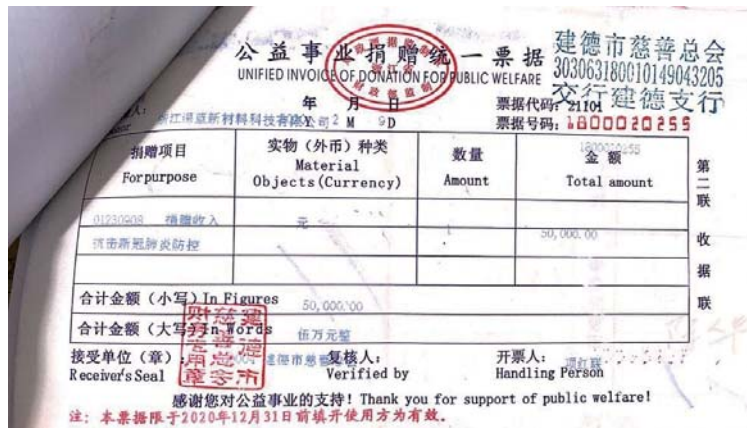 公益事业捐赠统一票据
UNIFIED INVOICE OF DONATION FOR PUBLIC WELFARE
建德市慈善总会
303063180010149043205
交行建德支行
年 月 日
Y 2 M 9 D
票据代码: 21101
票据号码: 1800020255
新材料科技有限公司
捐赠项目
For purpose
实物（外币）种类
Material
Objects (Currency)
数量
Amount
1800020255
金额
Total amount
01230908 捐赠收入
元
1
50,000.00
抗击新冠肺炎防控
合计金额（小写）In Figures
50,000.00
合计金额（大写）In Words
伍万元整
接受单位（章）:
Receiver's Seal
建德市慈善
复核人:
Verified by
开票人:
Handling Person
项红联
建德市慈善总会财务专用章
第二联 收据联
感谢您对公益事业的支持! Thank you for support of public welfare!
注: 本票据限于2020年12月31日前填开使用方为有效.